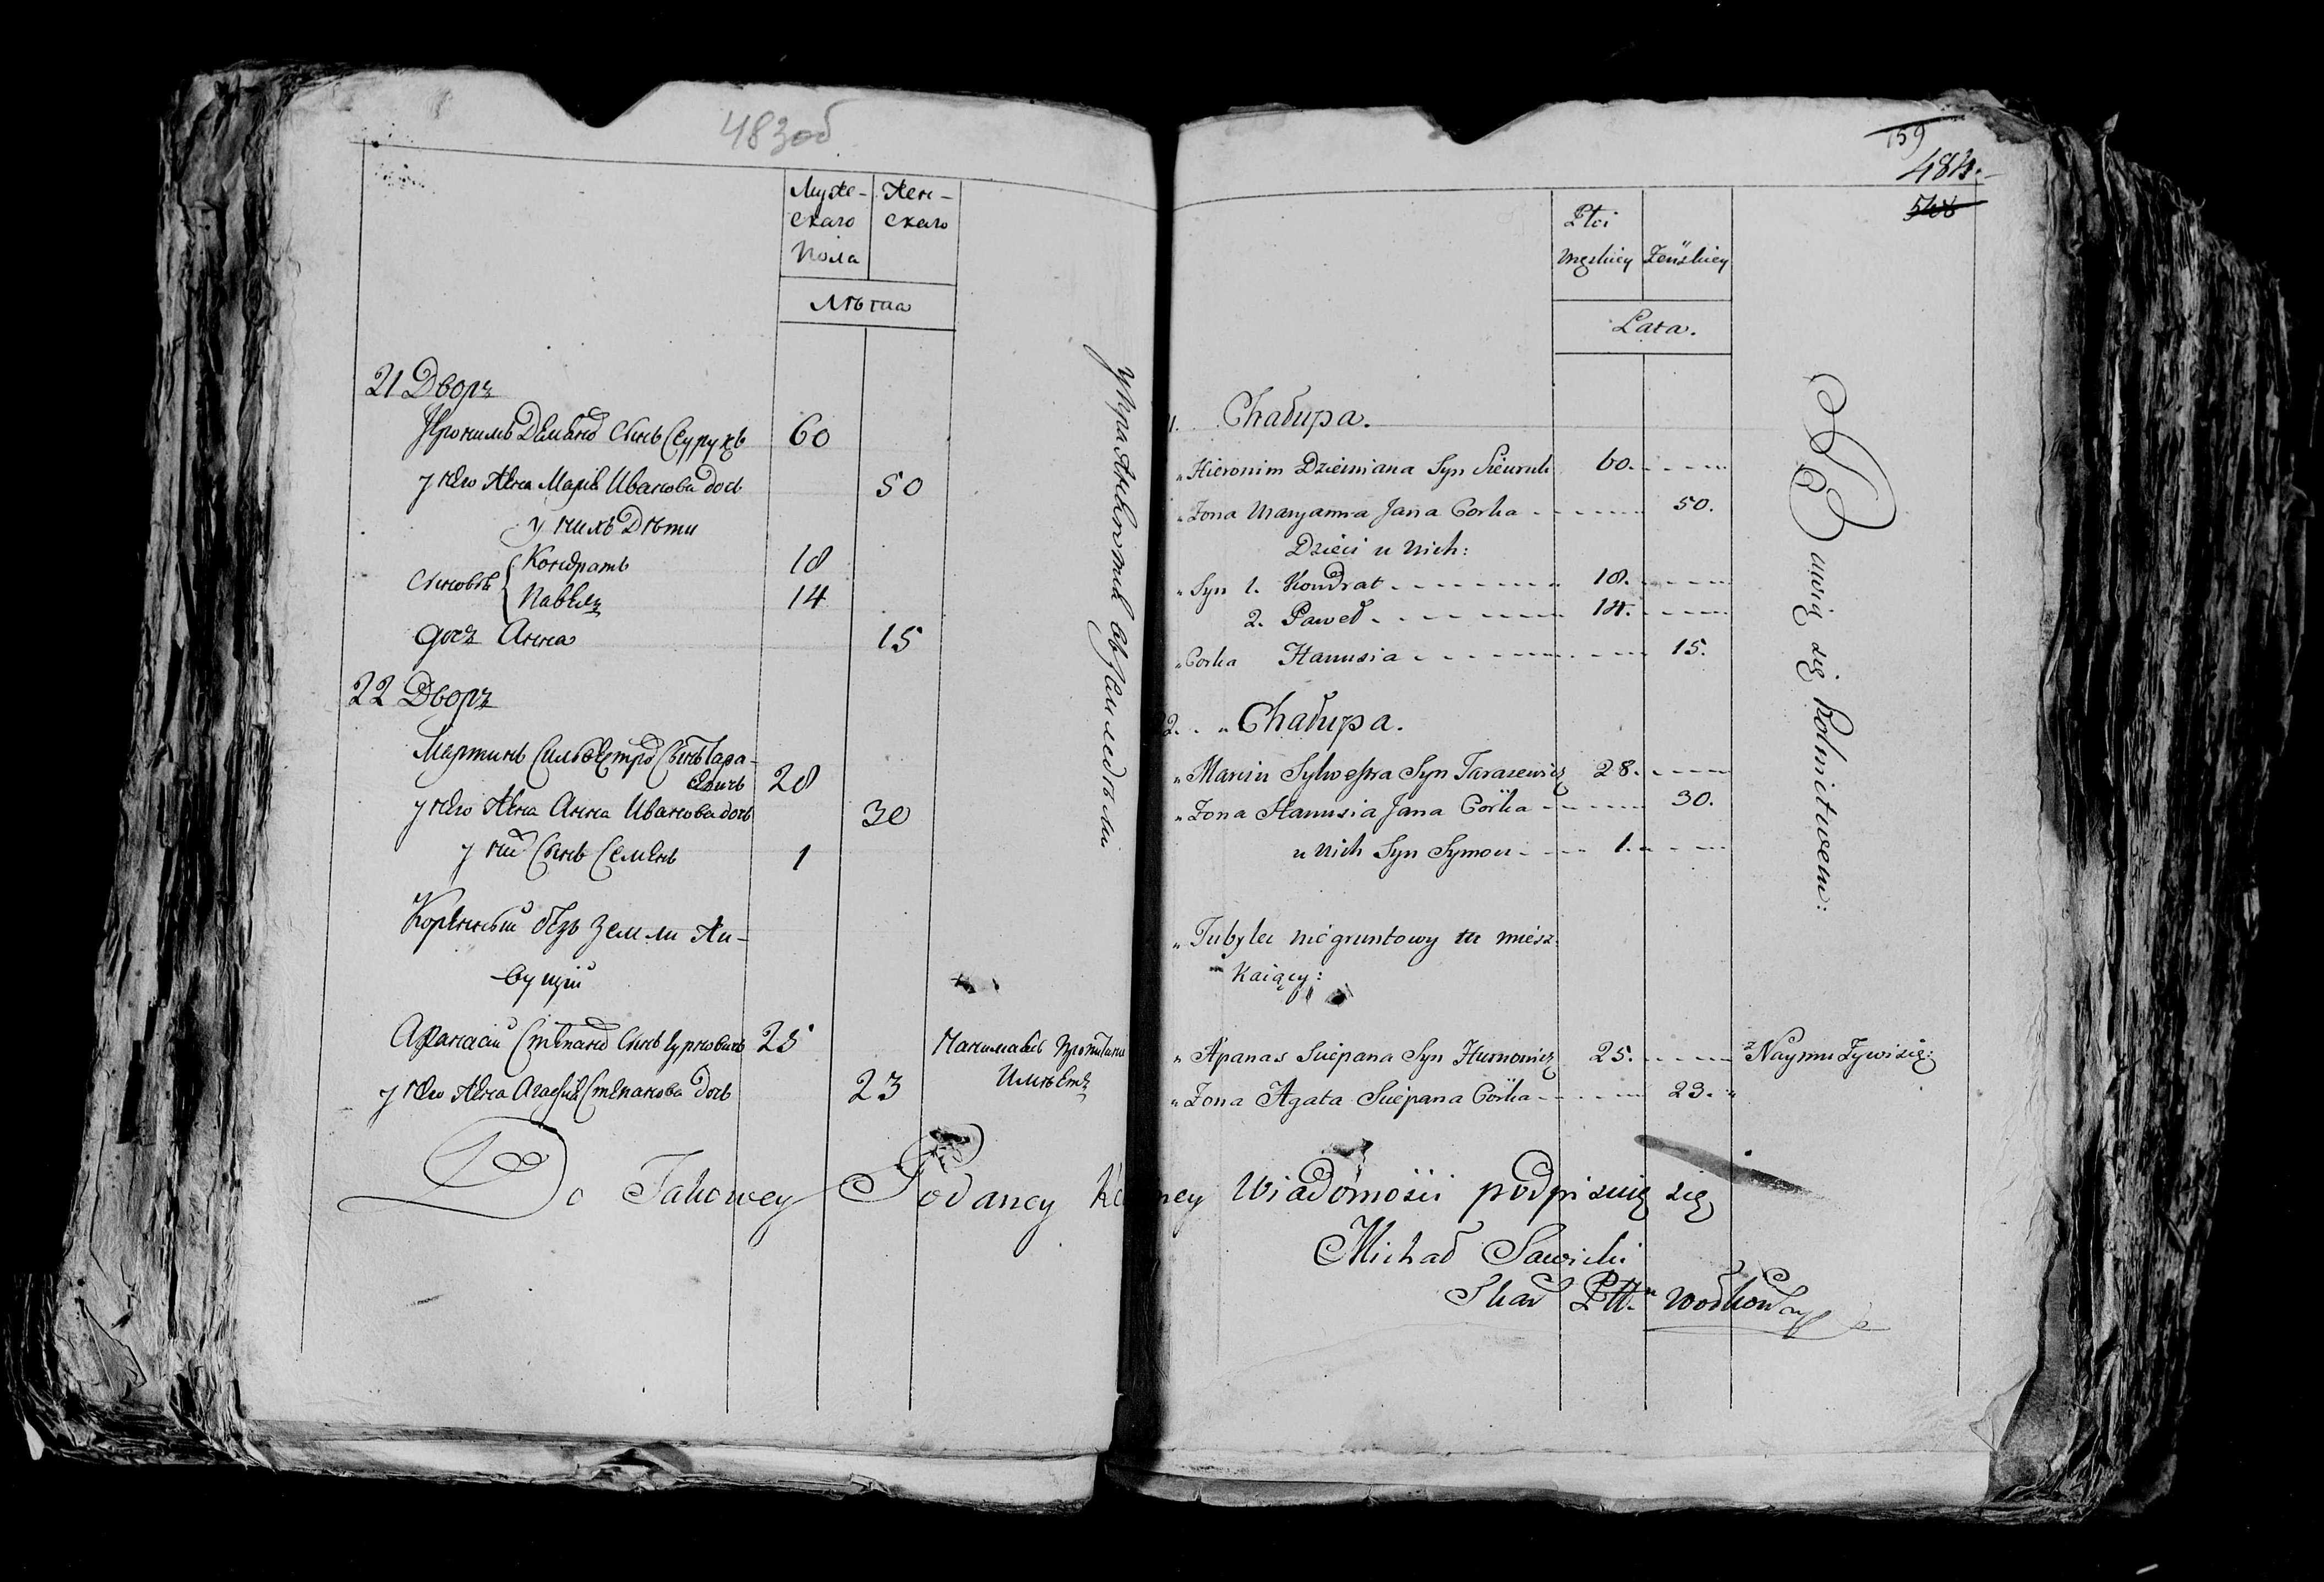 483об
Муже-
скаго
Пола
Жен-
скаго
Лѣта
21 Дворъ
Яронимъ Демьяно Сынъ Сеурукъ 60
у него Жена Марія Иванова дочь 50
у нихъ Дѣти
Сыновья Кондратъ 18
Павелъ 14
дочь Анна 15
22 Дворъ
Мартинъ Сильвестро Сынъ Тара-
севичь 28
у него Жена Анна Иванова дочь 30
у ний Сынъ Семенъ 1
Коренный безъ Земли Жи-
вущій
Афанасій Степано Сынъ 25
у него Жена Агафія Степанова дочь 23
упражняются въ
Имѣетъ
159
484.
Płci
męskiey
Żeńskiey
Lata.
1. Chałupa.
„ Hieronim Dziemiana Syn Sieuruk 60.
„ Zona Maryanna Jana Corka 50.
Dzieci u Nich:
„ Syn 1. Kondrat 18.
2. Paweł 14.
„ Corka Hanusia 15.
2. „ Chałupa.
„ Marcin Sylwestra Syn Tarasewicz 28.
„ Zona Hanusia Jana Córka 30.
u Nich Syn Symon 1.
„ Tubylec niegruntowy tu miesz-
kaiący:
„ Apanas Sciepana Syn Hurnowicz 25. z Naymu Żywi się:
„ Zona Agata Sciepana Córka 23.
Bawią się Rolnictwem:
Do Takowey Podaney Wiadomości podpisuię się
Michał Sawicki